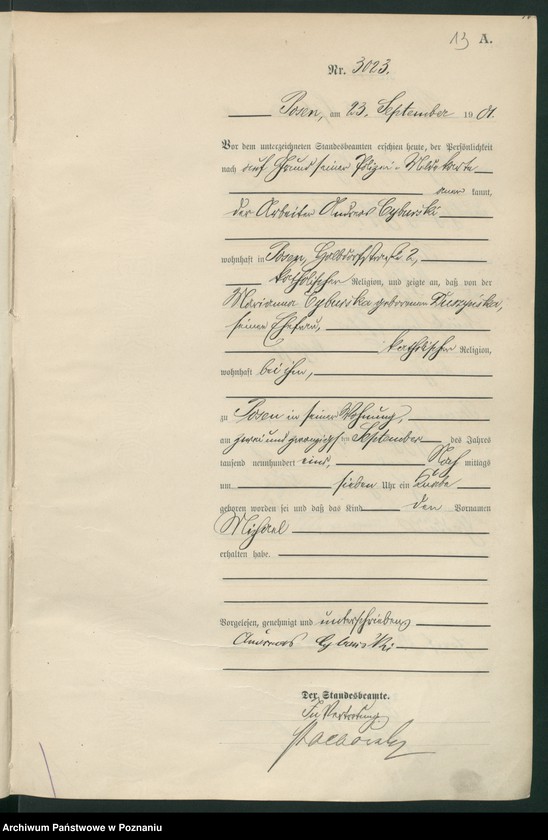 13 A.
Nr. 3023.
Posen, am 23. September 1901.
Vor dem unterzeichneten Standesbeamten erschien heute, der Persönlichkeit
nach auf Grund seiner Polizei-Meldekarte
aner kannt,
der Arbeiter Andreas Cybulski
wohnhaft in Posen, 2,
katholischer Religion, und zeigte an, daß von der
Marianna Cybulska geborenen
seiner Ehefrau,
katholischer Religion,
wohnhaft bei ihm,
zu Posen in seiner Wohnung,
am zwei und zwanzigsten September des Jahres
tausend neunhundert eins, Nach mittags
um sieben Uhr ein Knabe
geboren worden sei und daß das Kind den Vornamen
Michael
erhalten habe.
Vorgelesen, genehmigt und unterschrieben
Andreas Cybulski
Der Standesbeamte.
In Vertretung
Archiwum Państwowe w Poznaniu